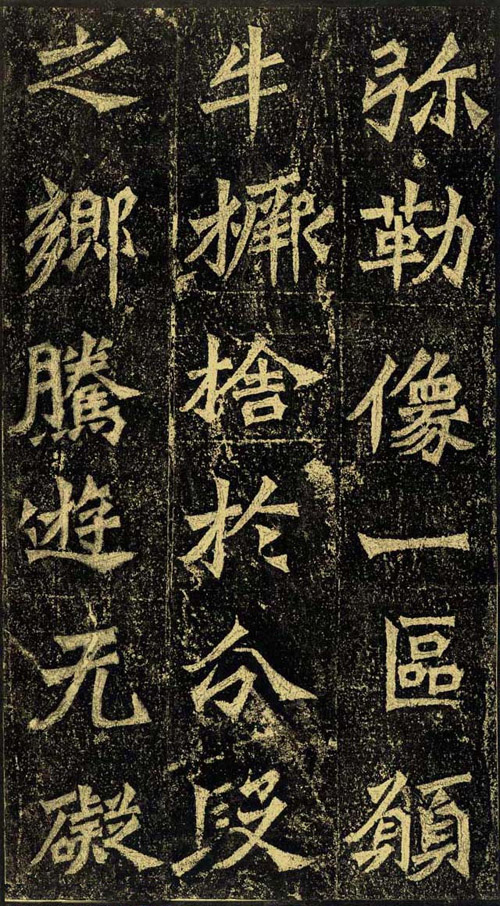 弥勒像一區願
牛橛捨於分段
之鄉騰遊无礙